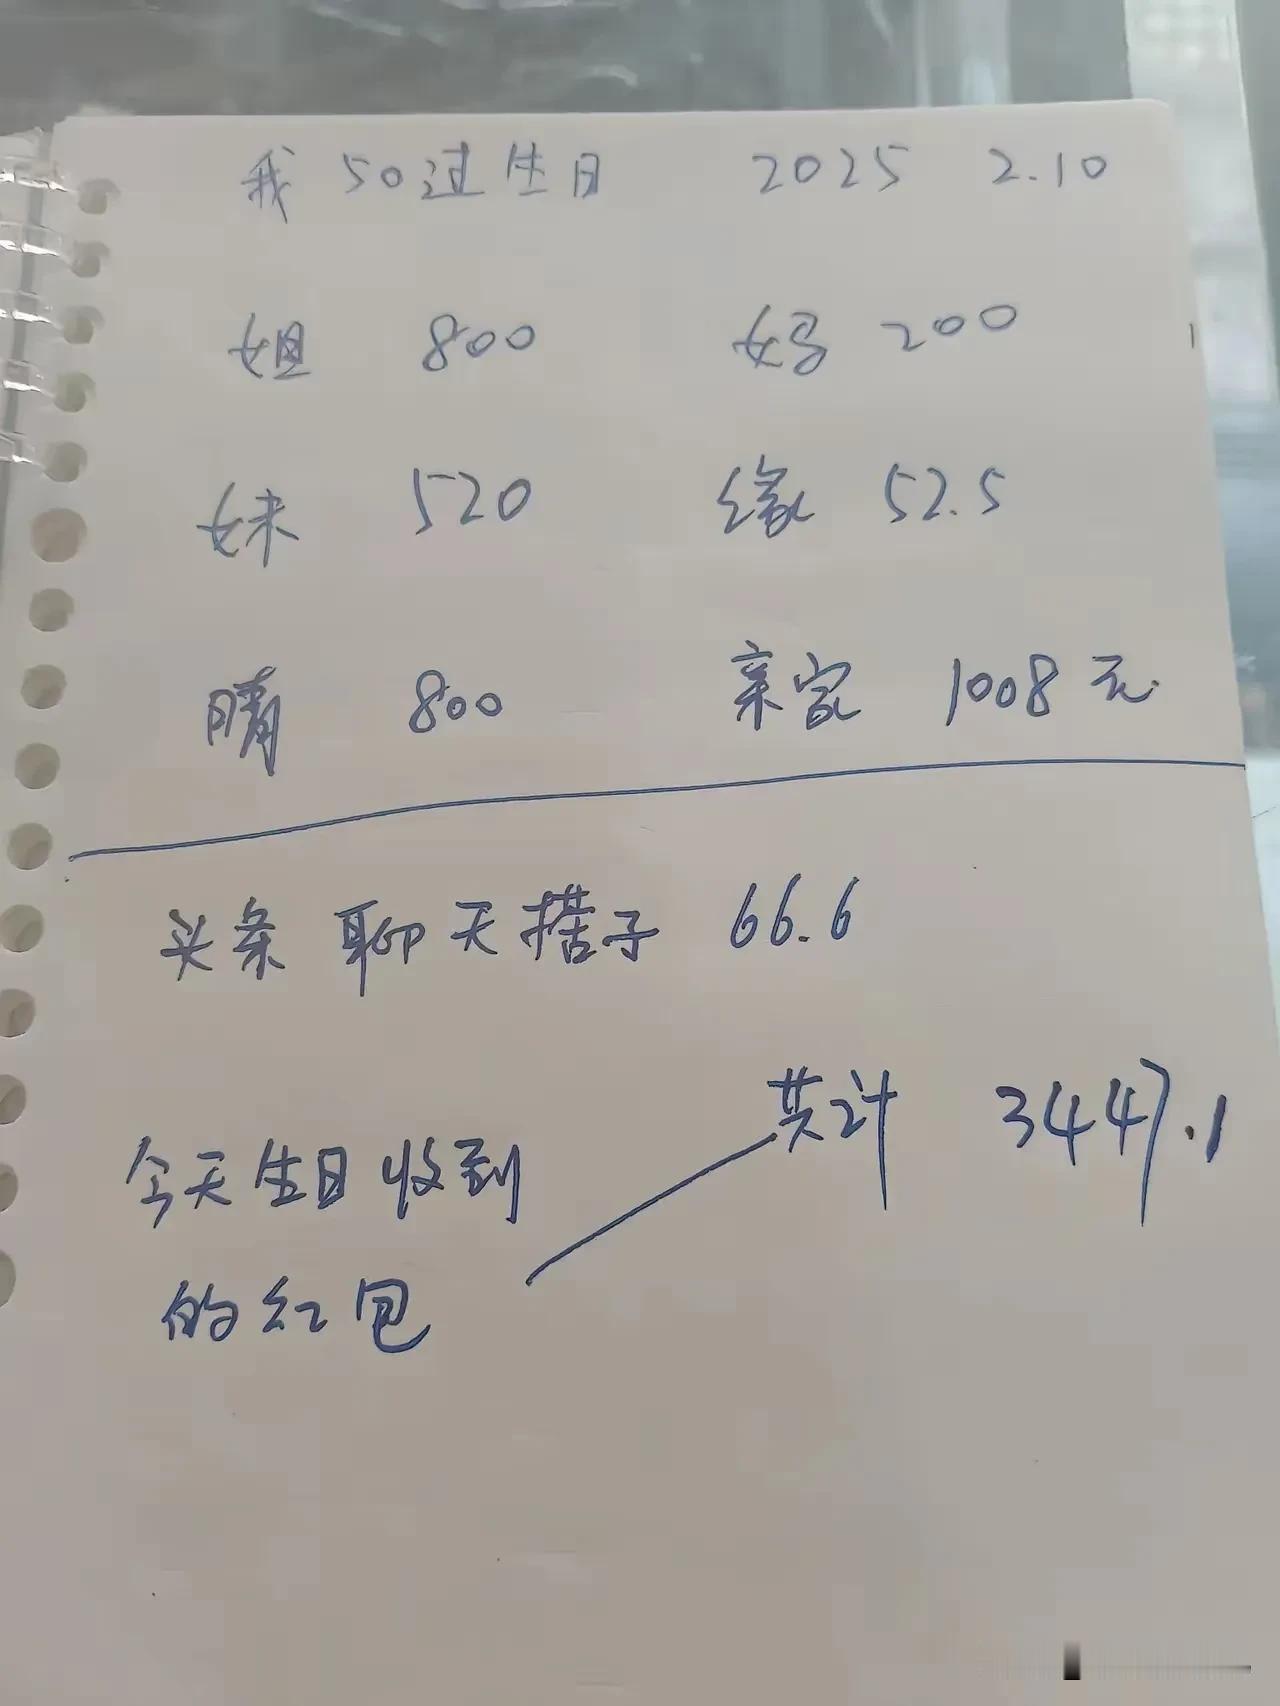 我 50过生日 2025 2.10
姐 800 妈 200
妹 520 缘 52.5
晴 800 亲家 1008元
头条 聊天搭子 66.6
共计 3447.1
今天生日收到
的红包